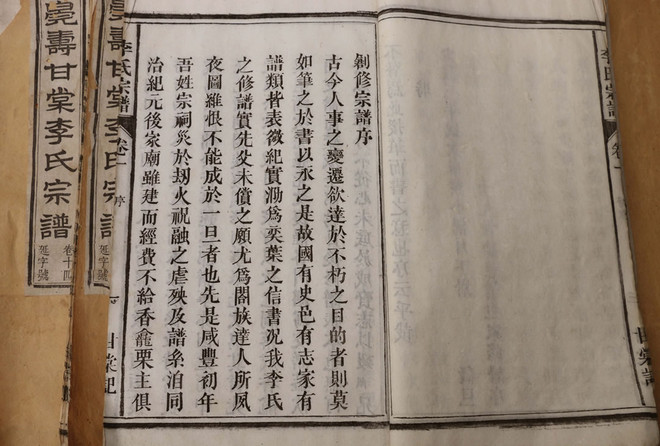 李氏宗譜
卷一
剏修宗譜序
古今人事之變遷欲達於不朽之目的者則莫
如筆之於書以永之是故國有史邑有志家有
譜類皆表微紀實泐爲奕葉之信書況我李氏
之修譜實先父未償之願尤爲閤族達人所夙
夜圖維恨不能成於一旦者也先是咸豐初年
吾姓宗祠災於刼火祝融之虐殃及譜系洎同
治紀元後家廟雖建而經費不給香龕栗主俱
李氏宗譜
序
甘棠記
壽甘棠李氏宗譜
延字號
壽甘棠李氏宗譜
卷十四
延字號